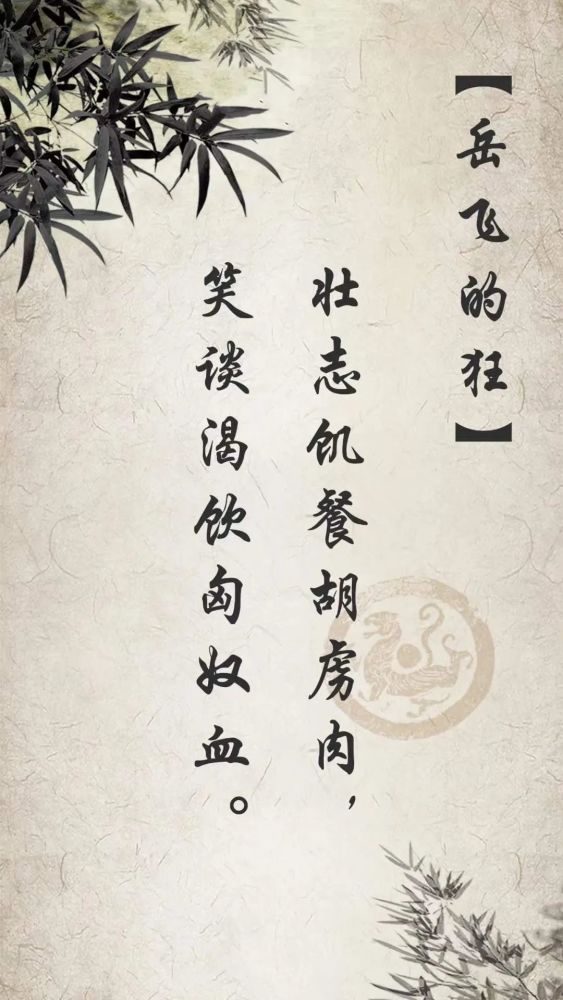 【岳飞的狂】
壮志饥餐胡虏肉，
笑谈渴饮匈奴血。